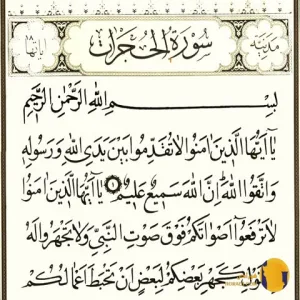 مدنية سورة الحجرات آياتها ١٨
بسم الله الرحمن الرحيم
يا أيها الذين آمنوا لا تقدموا بين يدي الله ورسوله
واتقوا الله إن الله سميع عليم ١ يا أيها الذين آمنوا
لا ترفعوا أصواتكم فوق صوت النبي ولا تجهروا له
بالقول كجهر بعضكم لبعض أن تحبط أعمالكم